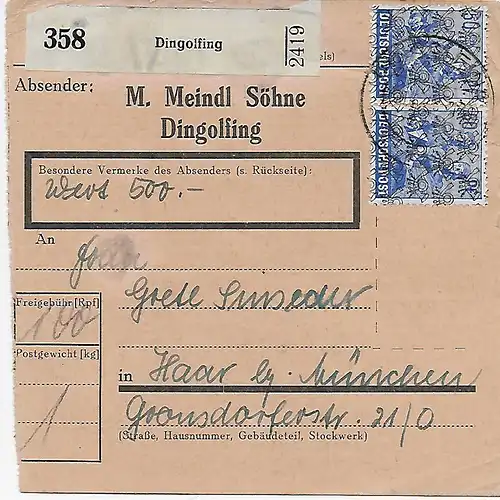 358 Dingolfing 2419
Absender:
M. Meindl Söhne
Dingolfing
Besondere Vermerke des Absenders (s. Rückseite):
Wert 500.-
An
Grete
Freigebühr [Rpf]
100
Postgewicht [kg]
1
in Haar by München
Gronsdorferstr. 21/0
(Straße, Hausnummer, Gebäudeteil, Stockwerk)
DEUTSCHE POST
DEUTSCHE POST